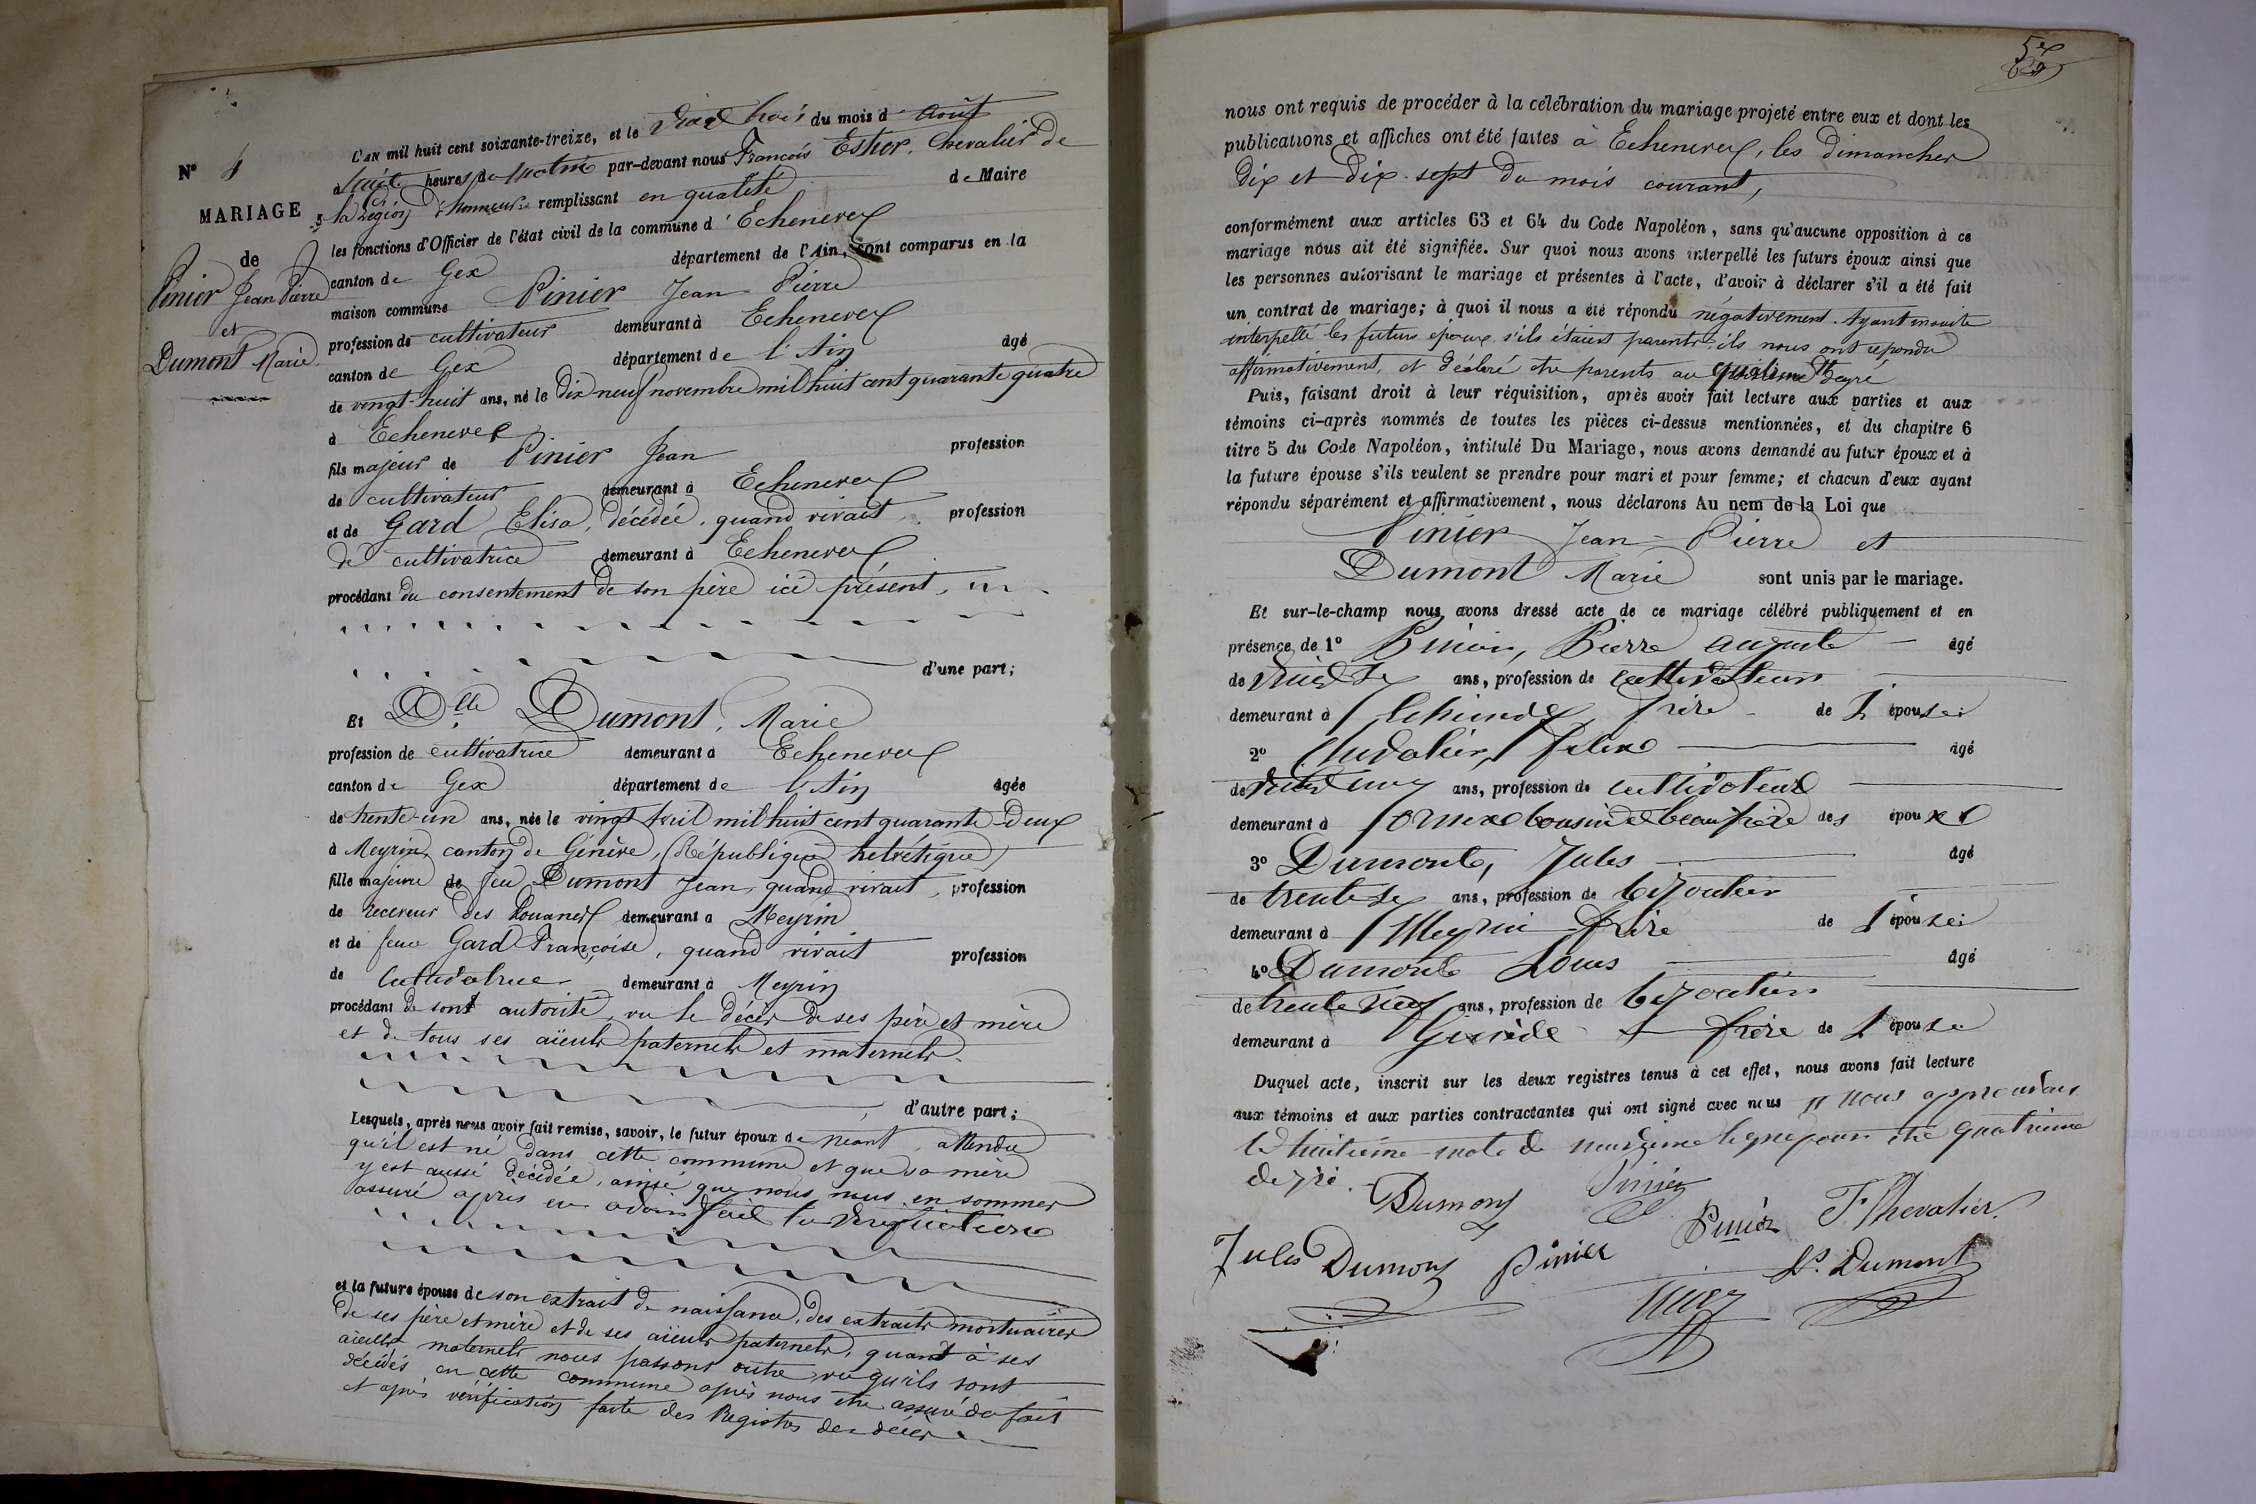 N° 4
MARIAGE
de
Pinier Jean Pierre
et
Dumont Marie
L'AN mil huit cent soixante-treize, et le vingt trois du mois d'Août
à huit heures du matin par-devant nous François Estior, Chevalier de
la Légion d'honneur remplissant en qualité de Maire
les fonctions d'Officier de l'état civil de la commune d'Echenevex
canton de Gex département de l'Ain, sont comparus en la
maison commune Pinier Jean Pierre
profession de cultivateur demeurant à Echenevex
canton de Gex département de l'Ain âgé
de vingt-huit ans, né le dix neuf novembre mil huit cent quarante quatre
à Echenevex
fils majeur de Pinier Jean profession
de cultivateur demeurant à Echenevex
et de Gard Elisa, décédée, quand vivait profession
de cultivatrice demeurant à Echenevex
procédant du consentement de son père ici présent,
d'une part;
Et Dlle Dumont, Marie
profession de cultivatrice demeurant à Echenevex
canton de Gex département de l'Ain âgée
de trente-un ans, née le vingt avril mil huit cent quarante-deux
à Meyrin, canton de Genève, (République helvétique)
fille majeure de feu Dumont Jean, quand vivait, profession
de receveur des Douanes demeurant à Meyrin
et de feue Gard Françoise, quand vivait profession
de cultivatrice demeurant à Meyrin
procédant de sont autorité, vu le décès de ses père et mère
et de tous ses aïeuls paternels et maternels.
d'autre part;
Lesquels, après nous avoir fait remise, savoir, le futur époux de néant, attendu
qu'il est né dans cette commune et que sa mère
y est aussi décédée, ainsi que nous nous en sommes
assuré après en avoir fait la vérification
et la future épouse de son extrait de naissance, des extraits mortuaires
de ses père et mère et de ses aïeuls paternels, quant à ses
aïeuls maternels nous passons outre vu qu'ils sont
décédés en cette commune après nous être assuré du fait
et après vérification faite des Registres de décès
nous ont requis de procéder à la célébration du mariage projeté entre eux et dont les
publications et affiches ont été faites à Echenevex, les dimanches
dix et dix-sept du mois courant,
conformément aux articles 63 et 64 du Code Napoléon, sans qu'aucune opposition à ce
mariage nous ait été signifiée. Sur quoi nous avons interpellé les futurs époux ainsi que
les personnes autorisant le mariage et présentes à l'acte, d'avoir à déclarer s'il a été fait
un contrat de mariage; à quoi il nous a été répondu négativement. Ayant ensuite
interpellé les futurs époux, s'ils étaient parents; ils nous ont répondu
affirmativement, et déclaré être parents au quatrième degré
Puis, faisant droit à leur réquisition, après avoir fait lecture aux parties et aux
témoins ci-après nommés de toutes les pièces ci-dessus mentionnées, et du chapitre 6
titre 5 du Code Napoléon, intitulé Du Mariage, nous avons demandé au futur époux et à
la future épouse s'ils veulent se prendre pour mari et pour femme; et chacun d'eux ayant
répondu séparément et affirmativement, nous déclarons Au nom de la Loi que
Pinier Jean-Pierre et
Dumont Marie sont unis par le mariage.
Et sur-le-champ nous avons dressé acte de ce mariage célébré publiquement et en
présence de 1° Pinier, Pierre Auguste âgé
de ans, profession de cultivateur
demeurant à Echenevex, frère de l'épouxe
2° Chevalier, Félix âgé
de ans, profession de cultivateur
demeurant à Ornex cousin et beau frère des époux
3° Dumont, Jules âgé
de trente ans, profession de bijoutier
demeurant à Meyrin frère de l'épouse
4° Dumont Louis âgé
de trente neuf ans, profession de bijoutier
demeurant à Genève frère de l'épouse
Duquel acte, inscrit sur les deux registres tenus à cet effet, nous avons fait lecture
aux témoins et aux parties contractantes qui ont signé avec nous nous approuvons
le huitième mot de neuvième ligne pour être quatrième
degré.
Dumont Pinier
Pinier F Chevalier
Jules Dumont Pinier Ls. Dumont